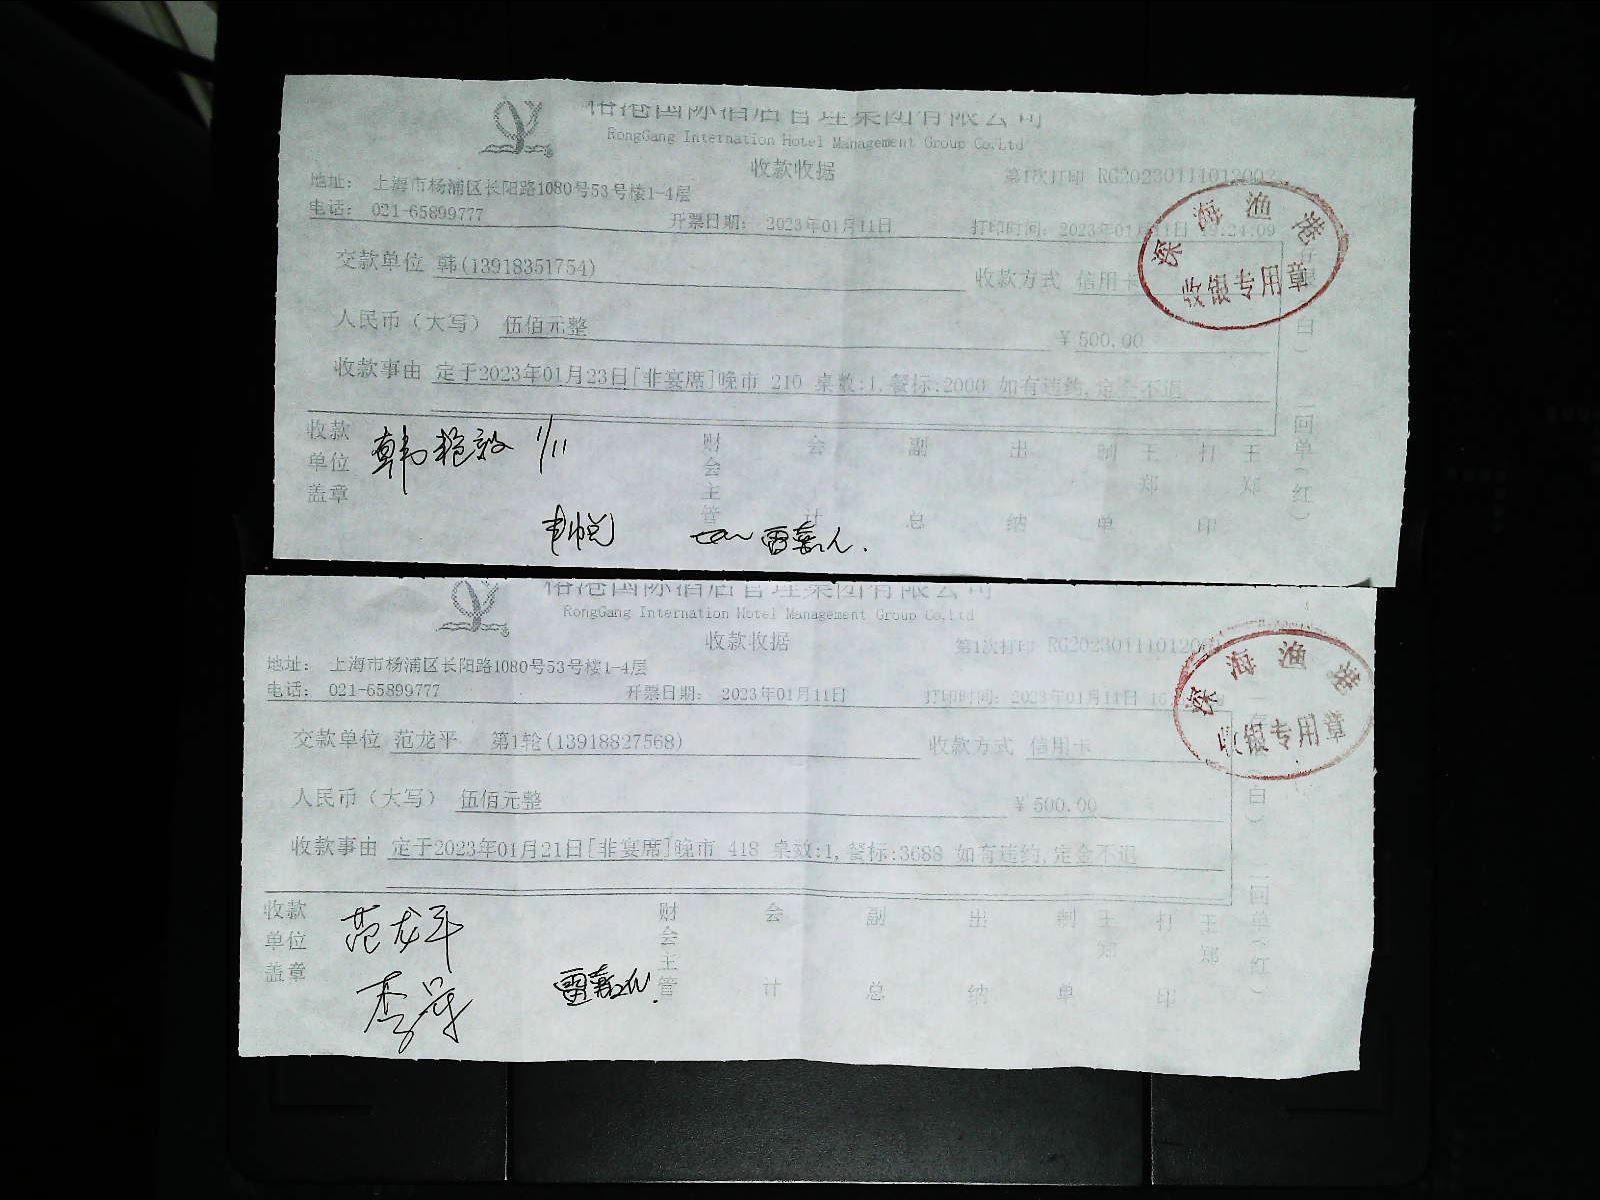 榕港国际酒店管理集团有限公司
RongGang Internation Hotel Management Group Co.Ltd
收款收据
第1次打印 RG20230111012002
地址： 上海市杨浦区长阳路1080号53号楼1-4层
电话： 021-65899777 开票日期： 2023年01月11日 打印时间：2023年01月11日 :24:09
深海渔港
收银专用章
交款单位 韩(13918351754) 收款方式 信用卡
人民币（大写） 伍佰元整 ￥500.00
收款事由 定于2023年01月23日[非宴席]晚市 210 桌数:1,餐标:2000 如有违约,定金不退
白） 二回单（红）
收款单位盖章 1/11 财会主管 会计 副总 出纳 制单 王郑 打印 王郑
国际酒店管理集团有限公司
RongGang Internation Hotel Management Group Co.Ltd
收款收据
第1次打印 RG2023011101200
地址： 上海市杨浦区长阳路1080号53号楼1-4层
电话： 021-65899777 开票日期： 2023年01月11日 打印时间：2023年01月11日 16
深海渔港
收银专用章
交款单位 范龙平 第1轮(13918827568) 收款方式 信用卡
人民币（大写） 伍佰元整 ￥500.00
收款事由 定于2023年01月21日[非宴席]晚市 418 桌数:1,餐标:3688 如有违约,定金不退
白） 二回单（红）
收款单位盖章 范龙平 财会主管 会计 副总 出纳 制单 王郑 打印 王郑